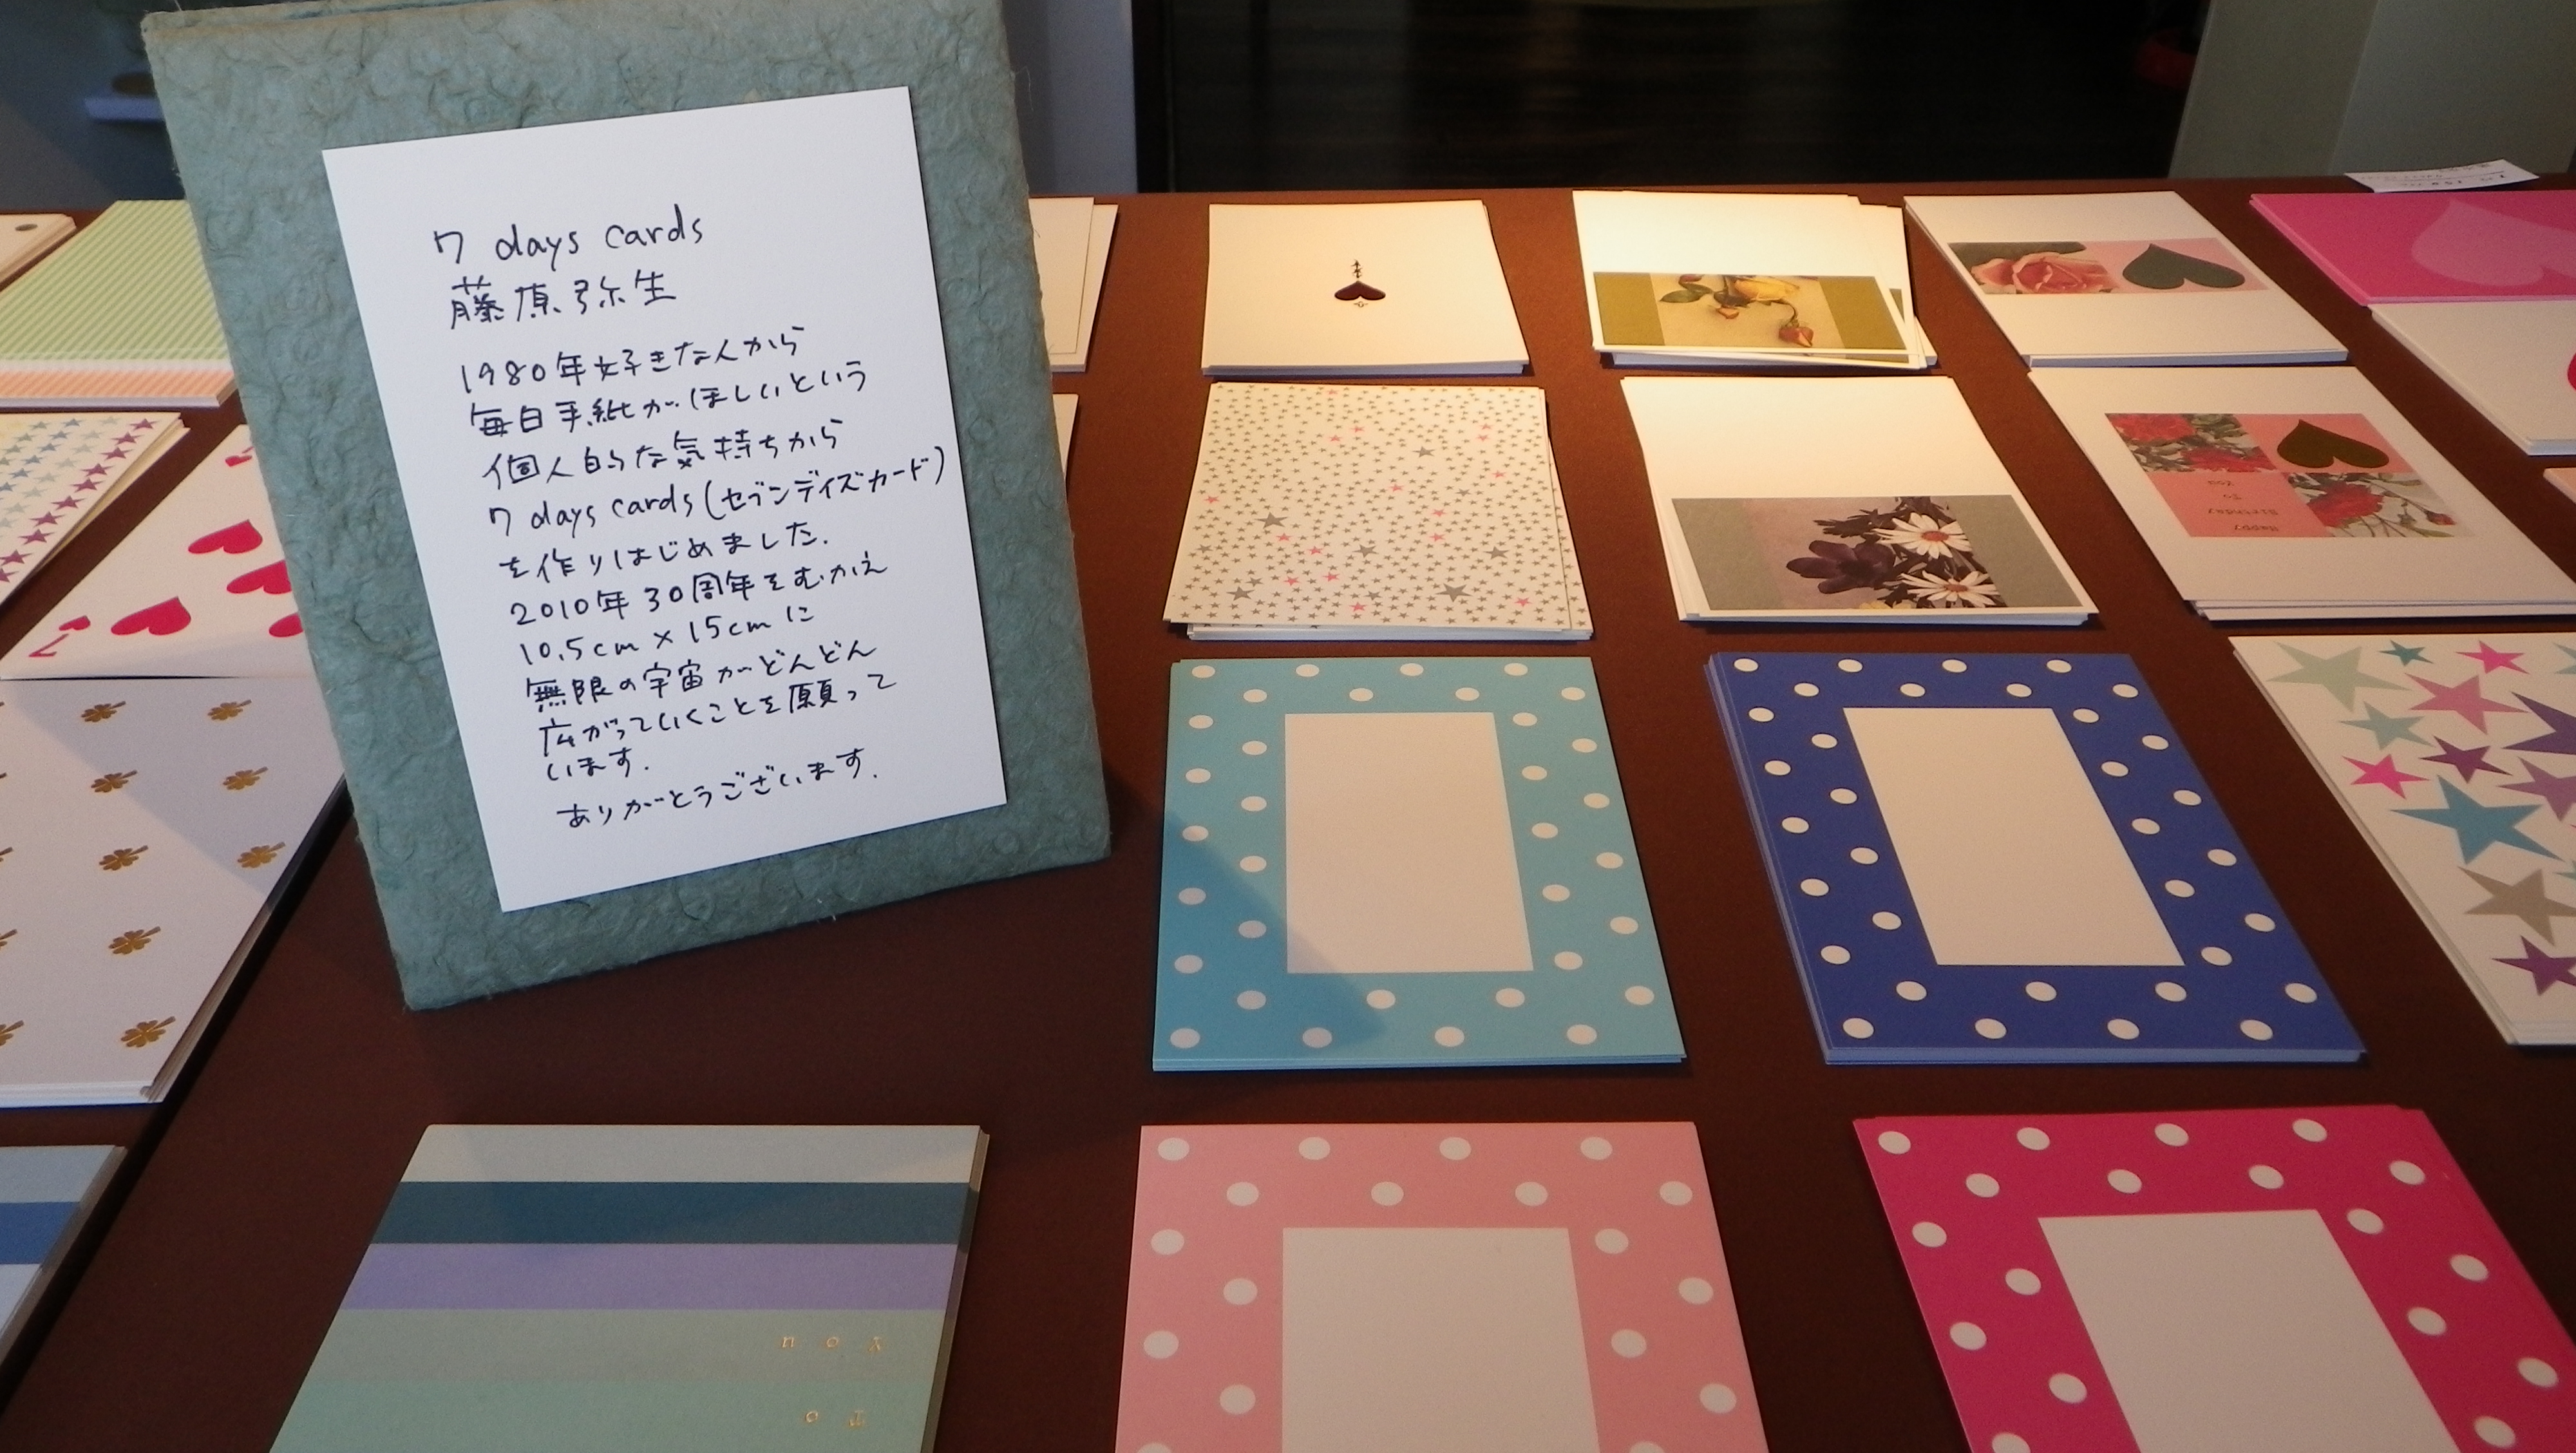 7 days cards
藤原弥生
1980年好きな人から
毎日手紙がほしいという
個人的な気持ちから
7 days cards(セブンデイズカード)
を作りはじめました.
2010年30周年をむかえ
10.5cm×15cmに
無限の宇宙がどんどん
広がっていくことを願って
います.
ありがとうございます.
7
Happy
Birthday
To
You